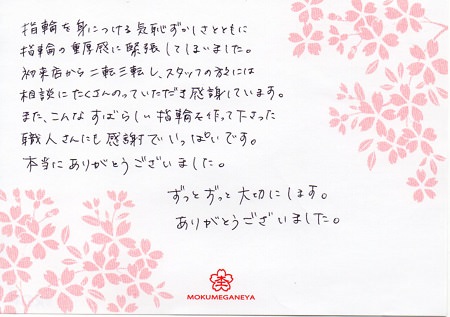 指輪を身につける気恥ずかしさとともに
指輪の重厚感に緊張してしまいました。
初来店から二転三転し、スタッフの方には
相談にたくさんのっていただき感謝しています。
また、こんなすばらしい指輪を作って下さった
職人さんにも感謝でいっぱいです。
本当にありがとうございました。
ずっとずっと大切にします。
ありがとうございました。
MOKUMEGANEYA